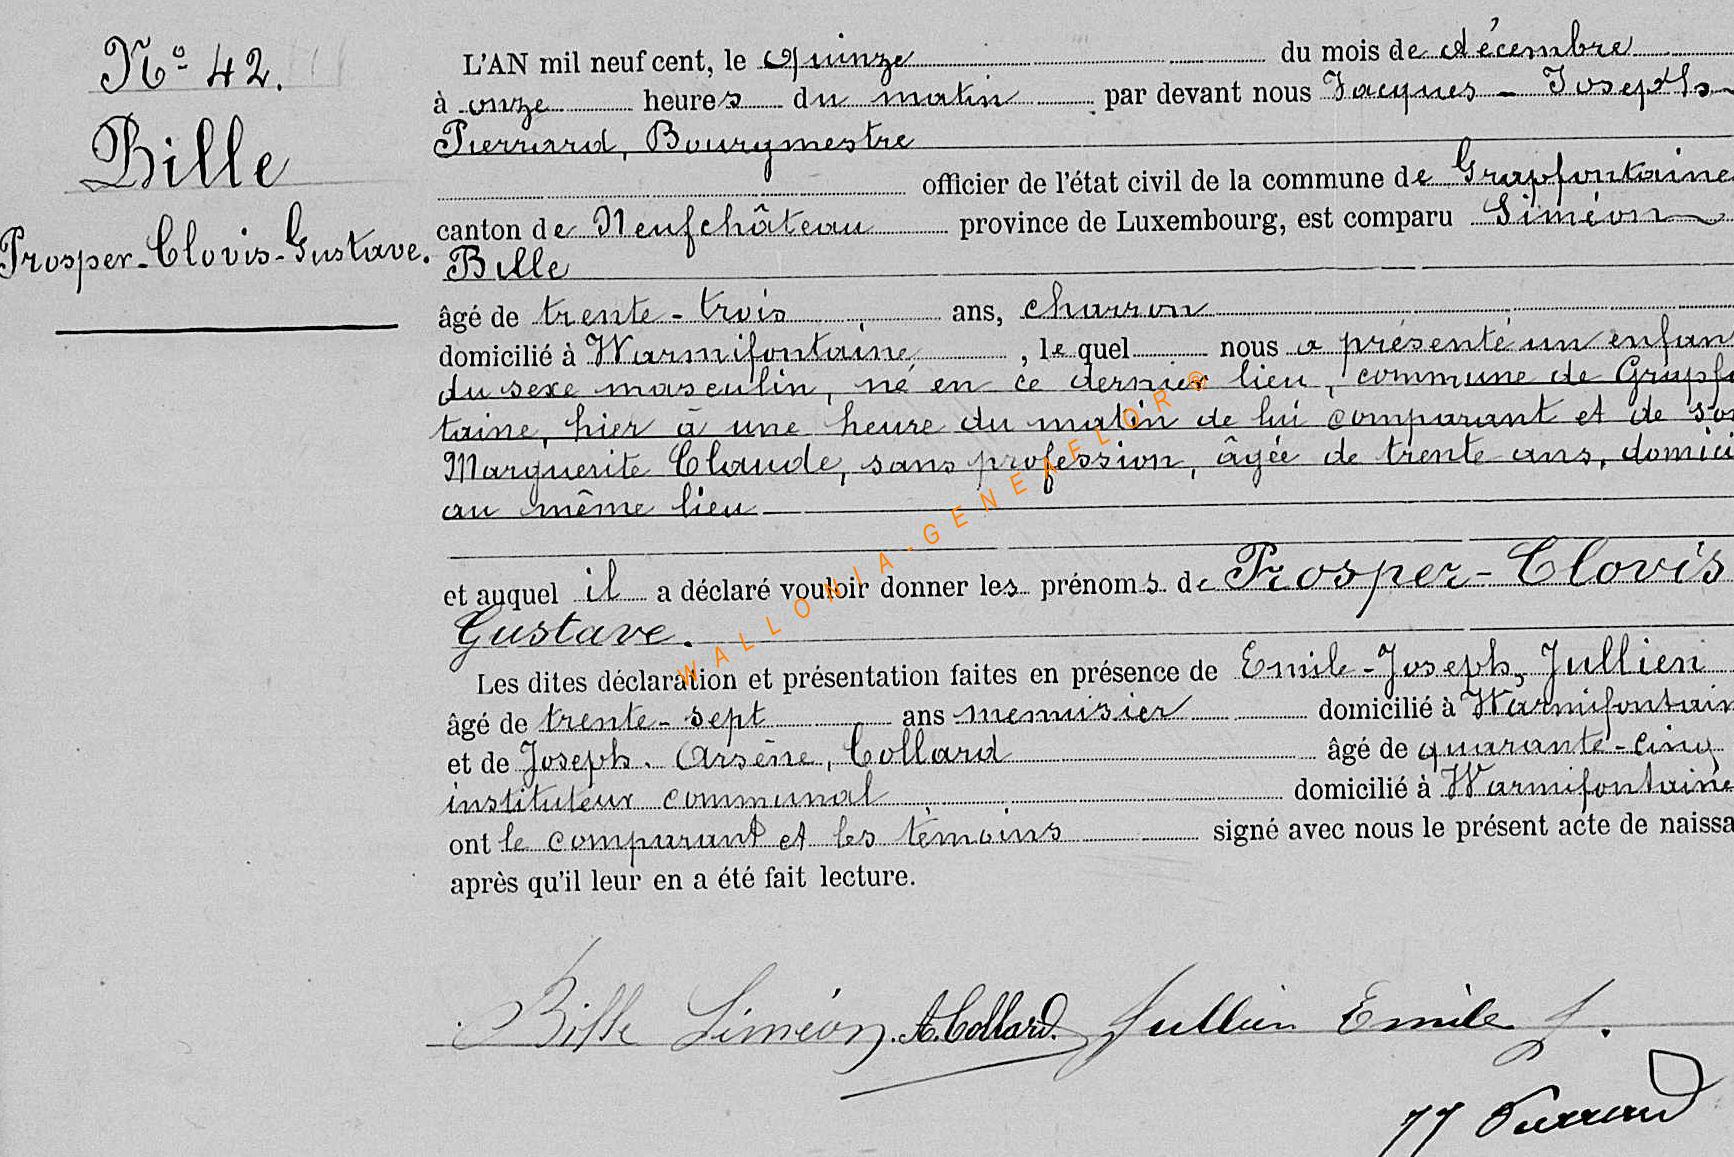 N° 42.
Bille
Prosper-Clovis-Gustave.
L'AN mil neuf cent, le Quinze du mois de décembre
à onze heures du matin par devant nous Jacques - Joseph
Pierrard, Bourgmestre
officier de l'état civil de la commune de Grapfontaine
canton de Neufchâteau province de Luxembourg, est comparu Siméon
Bille
âgé de trente-trois ans, charron
domicilié à Warmifontaine, lequel nous a présenté un enfan
du sexe masculin, né en ce dernier lieu, commune de Grapfo
taine, hier à une heure du matin de lui comparant et de so
Marguerite Claude, sans profession, âgée de trente ans, domici
au même lieu
et auquel il a déclaré vouloir donner les prénoms de Prosper-Clovis
Gustave.
Les dites déclaration et présentation faites en présence de Emile-Joseph, Jullien
âgé de trente-sept ans menuisier domicilié à Warmifontain
et de Joseph. Arsène, Collard âgé de quarante-cinq
instituteur communal domicilié à Warmifontaine
ont le comparant et les témoins signé avec nous le présent acte de naissa
après qu'il leur en a été fait lecture.
Bille Siméon. A. Collard. Jullien Emile J.
JJ Pierrard
WALLONIA-GENEAELOR®